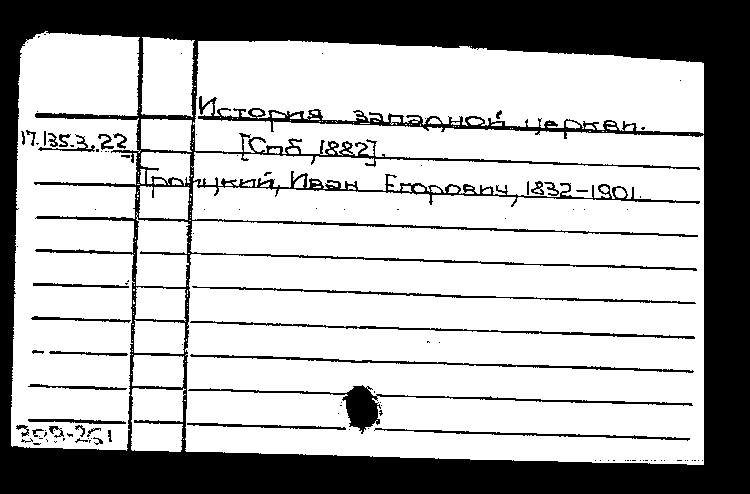 История западной церкви.
17.135.3.22 [Спб, 1882].
Троицкий, Иван Егорович, 1832-1901.